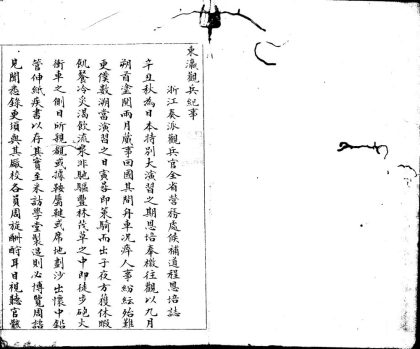 東瀛觀兵紀事
浙江奏派觀兵官全省營務處候補道程恩培誌
辛丑秋為日本特別大演習之期恩培奉檄往觀以九月
朔首塗閱兩月蕆事回國其間舟車況瘁人事紛紜殆難
更僕數溯當演習之日寅莓即策騎而出子夜方獲休暇
飢餐冷炙渴飲流澌非馳驅豐林茂草之中即徒步砲火
衝車之側日所親觀或據鞍屬鞬或席地劃沙出懷中鉛
管伸紙疾書以存其實至未訪學堂製造則必博覽周諮
見聞悉錄更須與其廠校各員周旋酬酢耳目視聽官骸